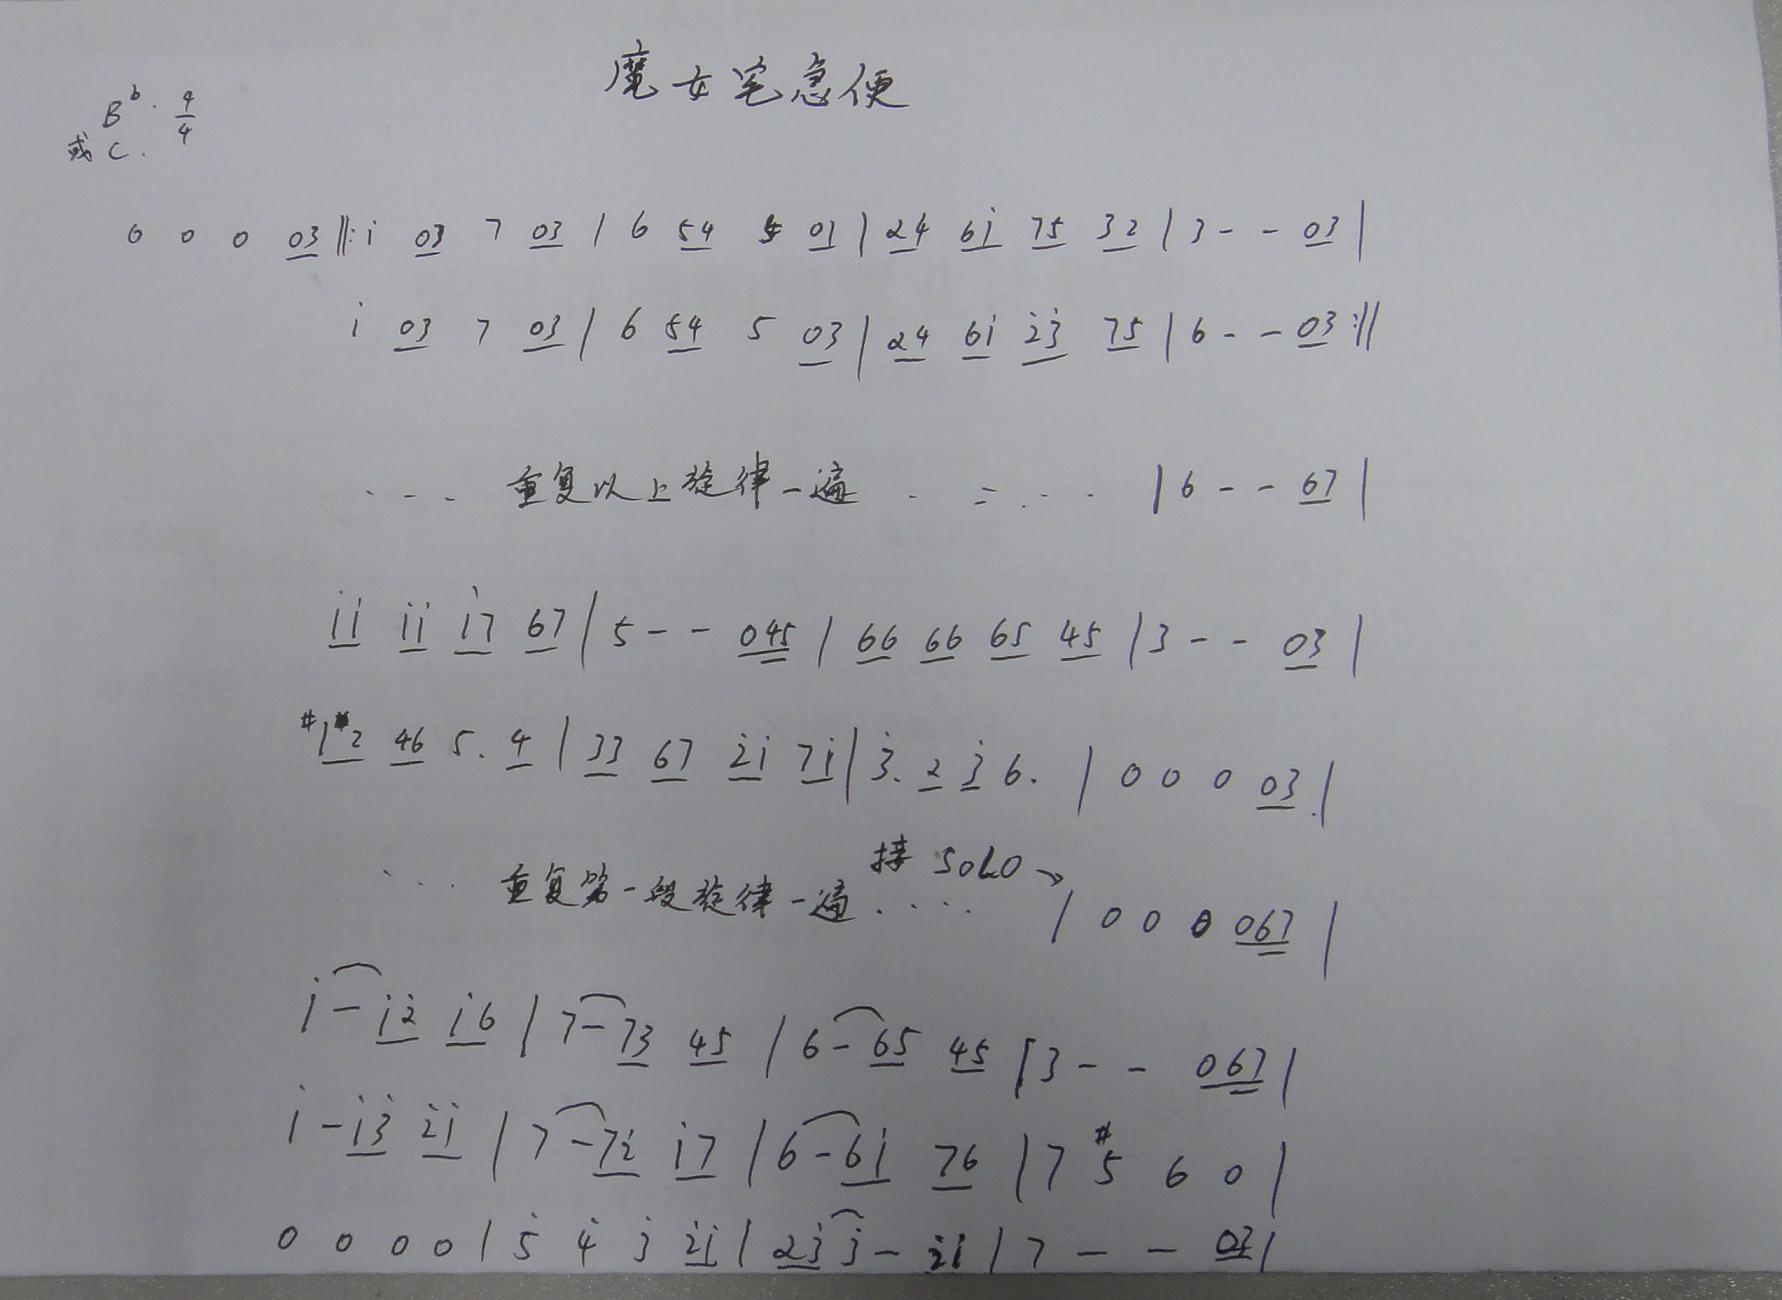 魔女宅急便
B♭. 4/4
或 C.
0 0 0 03 ‖: i 03 7 03 | 6 54 5 03 | 24 6i 75 32 | 3 - - 03 |
i 03 7 03 | 6 54 5 03 | 24 6i 2̇3̇ 75 | 6 - - 03 :‖
... 重复以上旋律一遍 ..... | 6 - - 67 |
ii ii i7 67 | 5 - - 045 | 66 66 65 45 | 3 - - 03 |
#1#2 46 5. 4 | 33 67 2̇i 7i | 3̇. 2 3̇ 6. | 0 0 0 03 |
接 SOLO →
... 重复第一段旋律一遍 .... | 0 0 0 067 |
i - i2̇ i6 | 7 - 73 45 | 6 - 65 45 | 3 - - 067 |
i - i3̇ 2̇i | 7 - 72̇ i7 | 6 - 6i 76 | 7 #5 6 0 |
0 0 0 0 | 5̇ 4̇ 3̇ 2̇i | 23̇ 3̇ - 2̇i | 7 - - 03 |